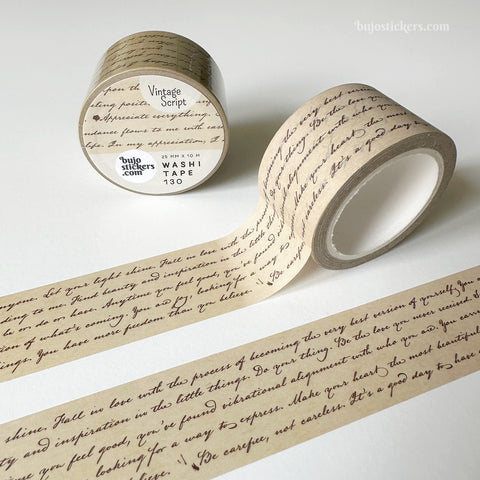 bujostickers.com
Vintage
Script
upon th
ating positi
Appreciate everything.
undance flows to me with ease
life. In my appreciation, I
bujo
stickers
.com
25 MM X 10 M
WASHI
TAPE
130
the very best version of yourself
Be the love you never
alignment with who you
heart the most
It's a good day
careless.
everyone. Let your light shine. Fall in love with the
ding to me. Find beauty and inspiration in the little
be or do or have. Anytime you feel good, you've found
tion of what's coming. You are joy, looking for a way to
things. You have more freedom than you believe. Be
shine. Fall in love with the process of becoming the very best version of yourself. You
ty and inspiration in the little things. Do your thing. Be the love you never received.
ime you feel good, you've found vibrational alignment with who you are. You
looking for a way to express. Make your heart the most beautiful
believe. Be carefree, not careless. It's a good day to have